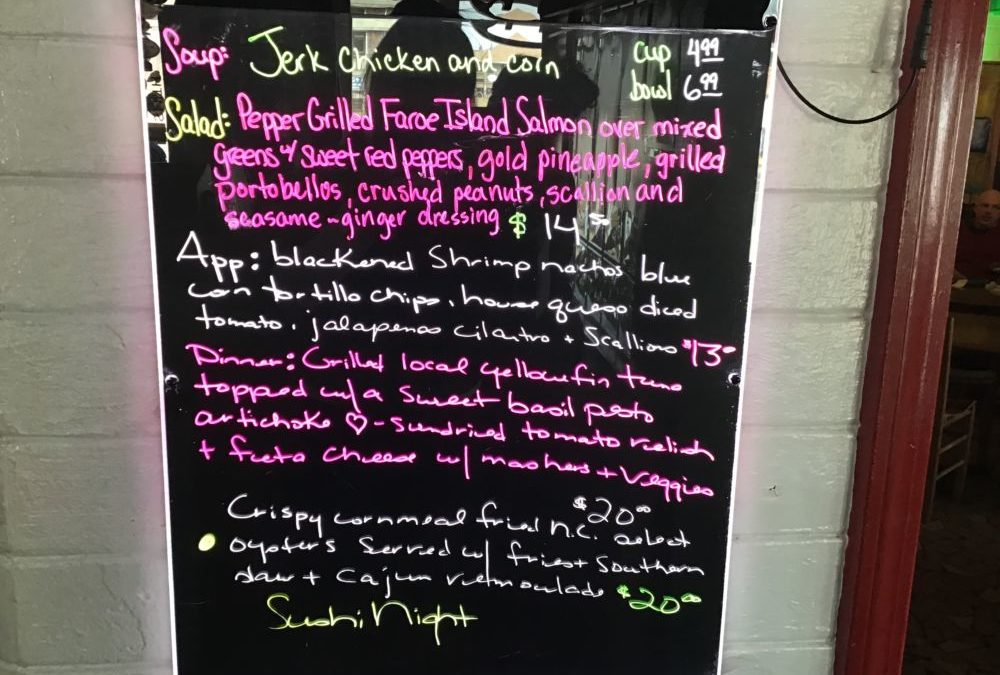 Soup: Jerk Chicken and corn cup 4.99
bowl 6.99
Salad: Pepper Grilled Faroe Island Salmon over mixed
greens w/ sweet red peppers, gold pineapple, grilled
portobellos, crushed peanuts, scallion and
seasame-ginger dressing $14.50
App: blackened Shrimp nachos blue
corn tortilla chips, house queso diced
tomato, jalapenos cilantro + Scallions $13.00
Dinner: Grilled local yellowfin tuna
topped w/ a sweet basil pesto
artichoke ♡ - sundried tomato relish
+ feta cheese w/ mashers + veggies
$20.00
Crispy cornmeal fried N.C. select
oysters served w/ fries + Southern
slaw + Cajun remoulade $20.00
Sushi Night